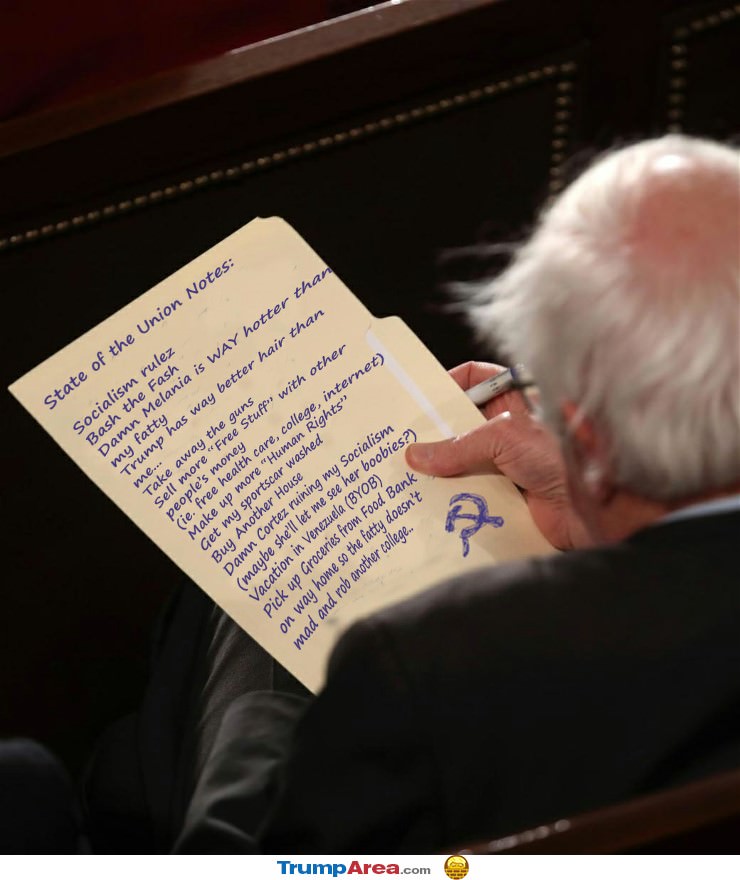 State of the Union Notes:
Socialism rulez
Bash the Fash
Damn Melania is WAY hotter than
my fatty
Trump has way better hair than
me...
Take away the guns
Sell more "Free Stuff" with other
people's money
(ie. free health care, college, internet)
Make up more "Human Rights"
Get my sportscar washed
Buy Another House
Damn Cortez ruining my Socialism
(maybe she'll let me see her boobies?)
Vacation in Venezuela (BYOB)
Pick up Groceries from Food Bank
on way home so the fatty doesn't
mad and rob another college..
TrumpArea.com